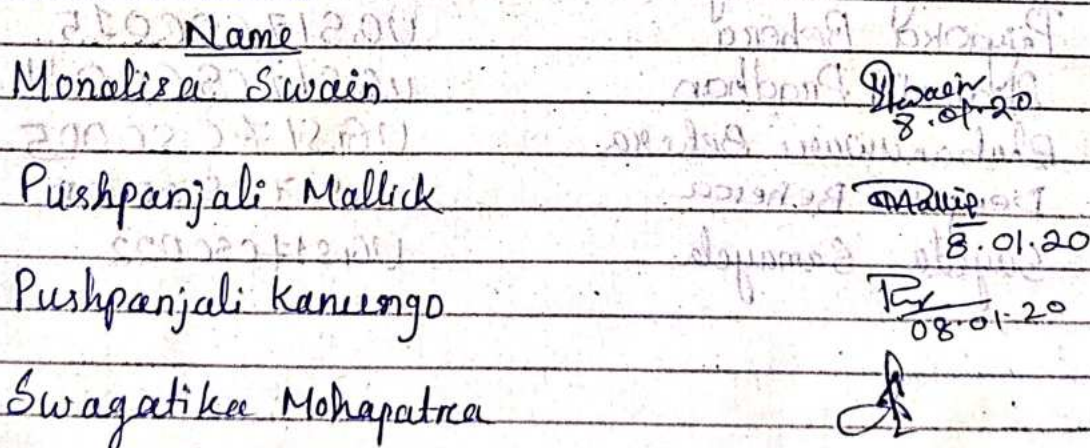 Name
Monalisa Swain Swain
8.01.20
Pushpanjali Mallick Mallick
8.01.20
Pushpanjali Kanungo
08.01.20
Swagatika Mohapatra